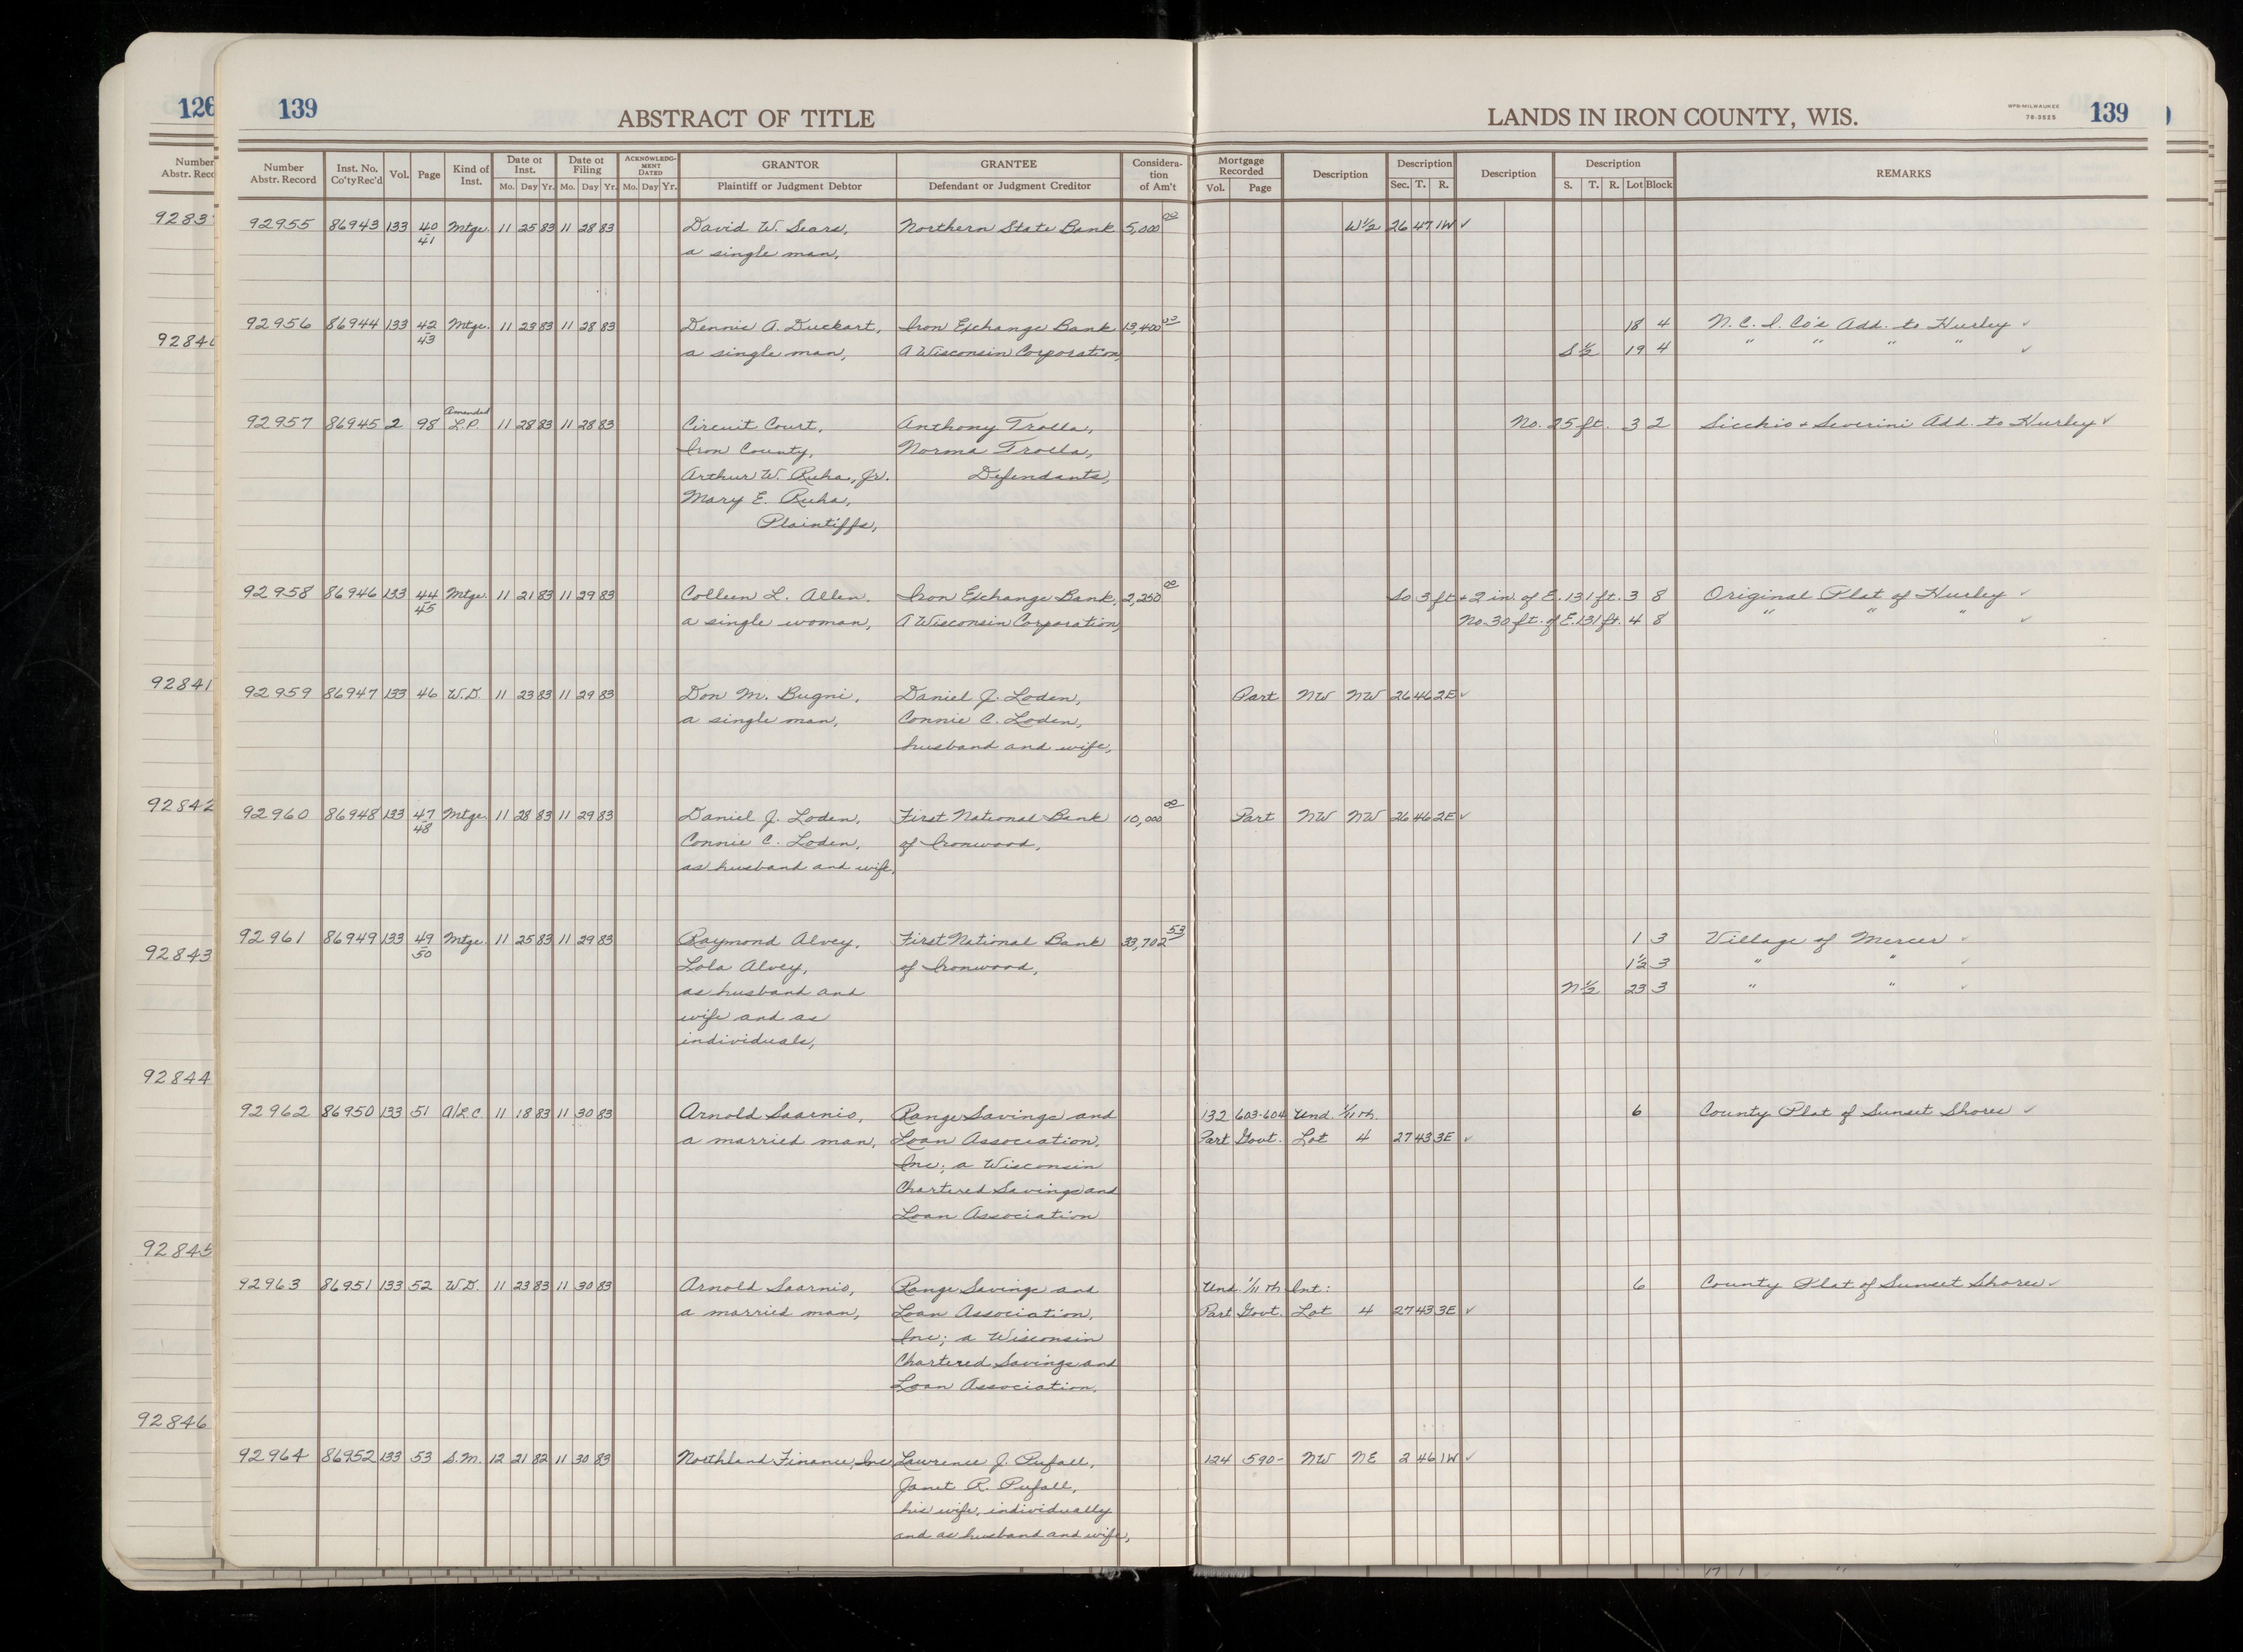 126
139 ABSTRACT OF TITLE LANDS IN IRON COUNTY, WIS. WPB-MILWAUKEE 78-3525 139
Number Abstr. Record Inst. No. Co'tyRec'd Vol. Page Kind of Inst. Date of Inst. Mo. Day Yr. Date of Filing Mo. Day Yr. ACKNOWLEDGMENT DATED Mo. Day Yr. GRANTOR Plaintiff or Judgment Debtor GRANTEE Defendant or Judgment Creditor Consideration of Am't Mortgage Recorded Vol. Page Description Description Sec. T. R. Description Description S. T. R. Lot Block REMARKS
92955 86943 133 40 Mtge. 11 25 83 11 28 83 David W. Sears, Northern State Bank 5,000 00 W½ 26 47 1W ✓
41 a single man,
92956 86944 133 42 Mtge. 11 23 83 11 28 83 Dennis A. Duckart, Iron Exchange Bank 13,400 00 18 4 N.C.I. Co's Add. to Hurley ✓
43 a single man, A Wisconsin Corporation, S½ 19 4 " " " " ✓
Amended
92957 86945 2 98 L.P. 11 28 83 11 28 83 Circuit Court, Anthony Trolla, No. 25 ft. 3 2 Sicchio & Severini Add. to Hurley ✓
Iron County, Norma Trolla,
Arthur W. Ruha, Jr. Defendants,
Mary E. Ruha,
Plaintiffs,
92958 86946 133 44 Mtge. 11 21 83 11 29 83 Colleen L. Allen. Iron Exchange Bank, 2,250 00 So 3 ft + 2 in. of E. 131 ft. 3 8 Original Plat of Hurley ✓
45 a single woman, A Wisconsin Corporation, No. 30 ft. of E. 131 ft. 4 8 " " " ✓
92959 86947 133 46 W.D. 11 23 83 11 29 83 Don M. Bugni, Daniel J. Loden, Part NW NW 26 46 2E ✓
a single man, Connie C. Loden,
husband and wife,
92960 86948 133 47 Mtge. 11 28 83 11 29 83 Daniel J. Loden, First National Bank 10,000 00 Part NW NW 26 46 2E ✓
48 Connie C. Loden, of Ironwood,
as husband and wife,
92961 86949 133 49 Mtge. 11 25 83 11 29 83 Raymond Alvey, First National Bank 33,702 53 1 3 Village of Mercer ✓
50 Lola Alvey, of Ironwood, 1½ 3 " " ✓
as husband and N½ 23 3 " " ✓
wife and as
individuals,
92962 86950 133 51 A/L.C. 11 18 83 11 30 83 Arnold Saarnio, Range Savings and 132 603-604 Und. 1/11 th. 6 County Plat of Sunset Shores ✓
a married man, Loan Association, Part Govt. Lot 4 27 43 3E ✓
Inc; a Wisconsin
Chartered Savings and
Loan Association
92963 86951 133 52 W.D. 11 23 83 11 30 83 Arnold Saarnio, Range Savings and Und. 1/11 th Int: 6 County Plat of Sunset Shores ✓
a married man, Loan Association, Part Govt. Lot 4 27 43 3E ✓
Inc; a Wisconsin
Chartered Savings and
Loan Association,
92964 86952 133 53 S.M. 12 21 82 11 30 83 Northland Finance, Inc Lawrence J. Pufall, 124 590- NW NE 2 46 1W ✓
Janet R. Pufall,
his wife, individually
and as husband and wife,
Number
Abstr. Reco
9283
9284
92841
92842
92843
92844
92845
92846